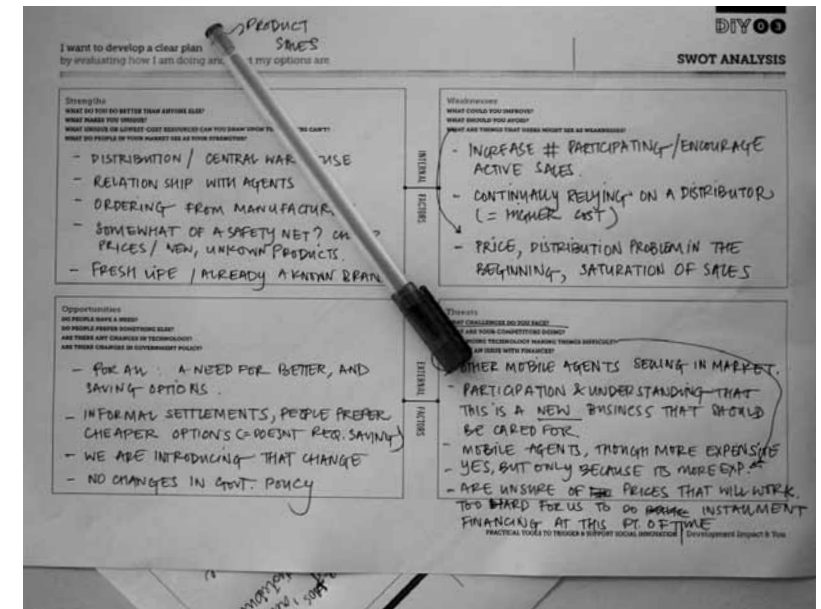 PRODUCT
SALES
DIY 03
I want to develop a clear plan
by evaluating how I am doing and my options are
SWOT ANALYSIS
Strengths
WHAT DO YOU DO BETTER THAN ANYONE ELSE?
WHAT MAKES YOU UNIQUE?
WHAT UNIQUE OR LOWEST-COST RESOURCES CAN YOU DRAW UPON CAN'T?
WHAT DO PEOPLE IN YOUR MARKET SEE AS YOUR STRENGTHS?
- DISTRIBUTION / CENTRAL
- RELATIONSHIP WITH AGENTS
- ORDERING FROM
- SOMEWHAT OF A SAFETY NET?
PRICES / NEW, UNKOWN PRODUCTS.
- FRESH LIFE / ALREADY A KNOWN
INTERNAL FACTORS
Weaknesses
WHAT COULD YOU IMPROVE?
WHAT SHOULD YOU AVOID?
WHAT ARE THINGS THAT USERS MIGHT SEE AS WEAKNESSES?
- INCREASE # PARTICIPATING/ENCOURAGE
ACTIVE SALES.
- CONTINUALLY RELYING ON A DISTRIBUTOR
(= HIGHER COST)
- PRICE, DISTRIBUTION PROBLEM IN THE
BEGINNING, SATURATION OF SALES
Opportunities
DO PEOPLE HAVE A NEED?
DO PEOPLE PREFER SOMETHING ELSE?
ARE THERE ANY CHANGES IN TECHNOLOGY?
ARE THERE CHANGES IN GOVERNMENT POLICY?
- FOR ALL : A NEED FOR BETTER, AND
SAVING OPTIONS.
- INFORMAL SETTLEMENTS, PEOPLE PREFER
CHEAPER OPTIONS (= DOESNT REQ. SAVING)
- WE ARE INTRODUCING THAT CHANGE
- NO CHANGES IN GOVT. POLICY
EXTERNAL FACTORS
Threats
WHAT CHALLENGES DO YOU FACE?
WHAT ARE YOUR COMPETITORS DOING?
TECHNOLOGY MAKING THINGS DIFFICULT?
AN ISSUE WITH FINANCES?
OTHER MOBILE AGENTS SELLING IN MARKET.
- PARTICIPATION & UNDERSTANDING THAT
THIS IS A NEW BUSINESS THAT SHOULD
BE CARED FOR.
- MOBILE AGENTS, THOUGH MORE EXPENSIVE
- YES, BUT ONLY BECAUSE ITS MORE EXP.
- ARE UNSURE OF PRICES THAT WILL WORK.
TOO HARD FOR US TO DO INSTALLMENT
FINANCING AT THIS PT. OF TIME
PRACTICAL TOOLS TO TRIGGER & SUPPORT SOCIAL INNOVATION | Development Impact & You